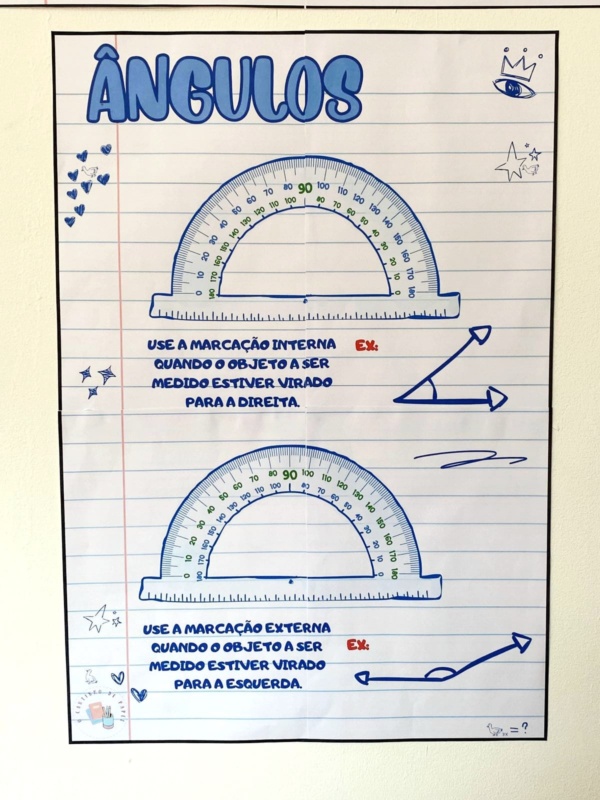 ÂNGULOS
0 10 20 30 40 50 60 70 80 90 100 110 120 130 140 150 160 170 180
180 170 160 150 140 130 120 110 100 80 70 60 50 40 30 20 10 0
USE A MARCAÇÃO INTERNA EX:
QUANDO O OBJETO A SER
MEDIDO ESTIVER VIRADO
PARA A DIREITA.
0 10 20 30 40 50 60 70 80 90 100 110 120 130 140 150 160 170 180
180 170 160 150 140 130 120 110 100 80 70 60 50 40 30 20 10 0
USE A MARCAÇÃO EXTERNA
QUANDO O OBJETO A SER EX:
MEDIDO ESTIVER VIRADO
PARA A ESQUERDA.
= ?